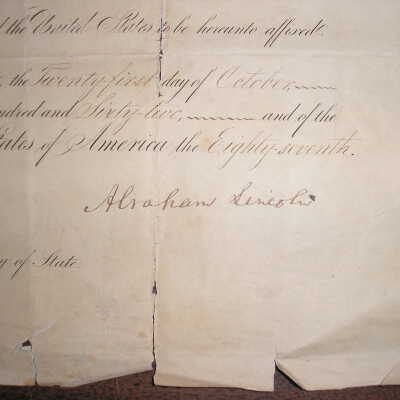 the United States to be hereunto affixed.
the Twenty-first day of October,
hundred and Sixty-two, and of the
States of America the Eighty-seventh.
Abraham Lincoln
y of State